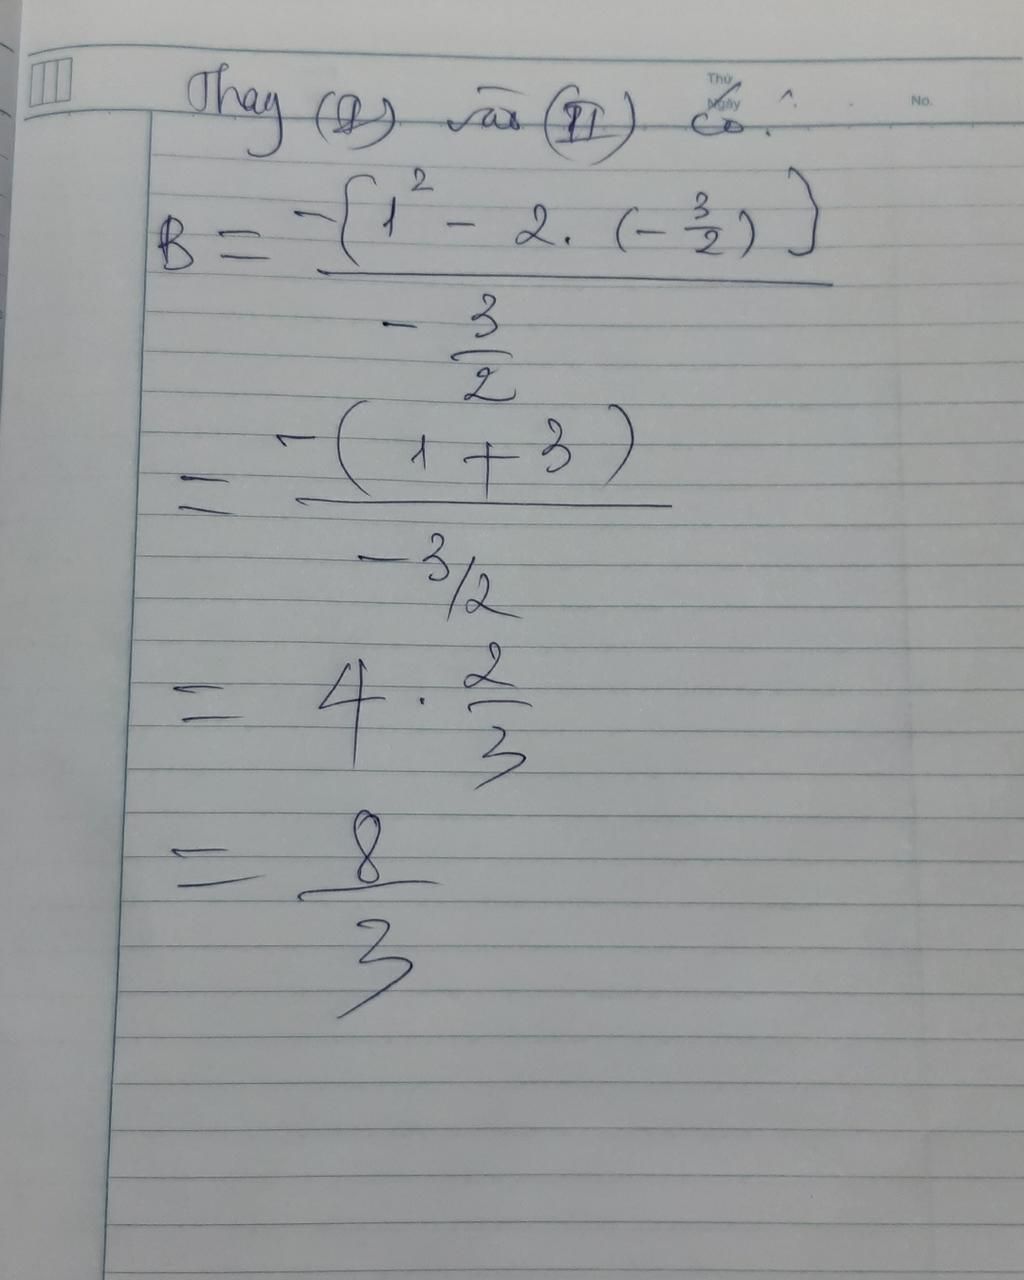 Thứ
Ngày
No.
Thay (I) vào (II) có:
B = -[1² - 2. (-3/2)] / -3/2
= -(1 + 3) / -3/2
= 4 · 2/3
= 8/3